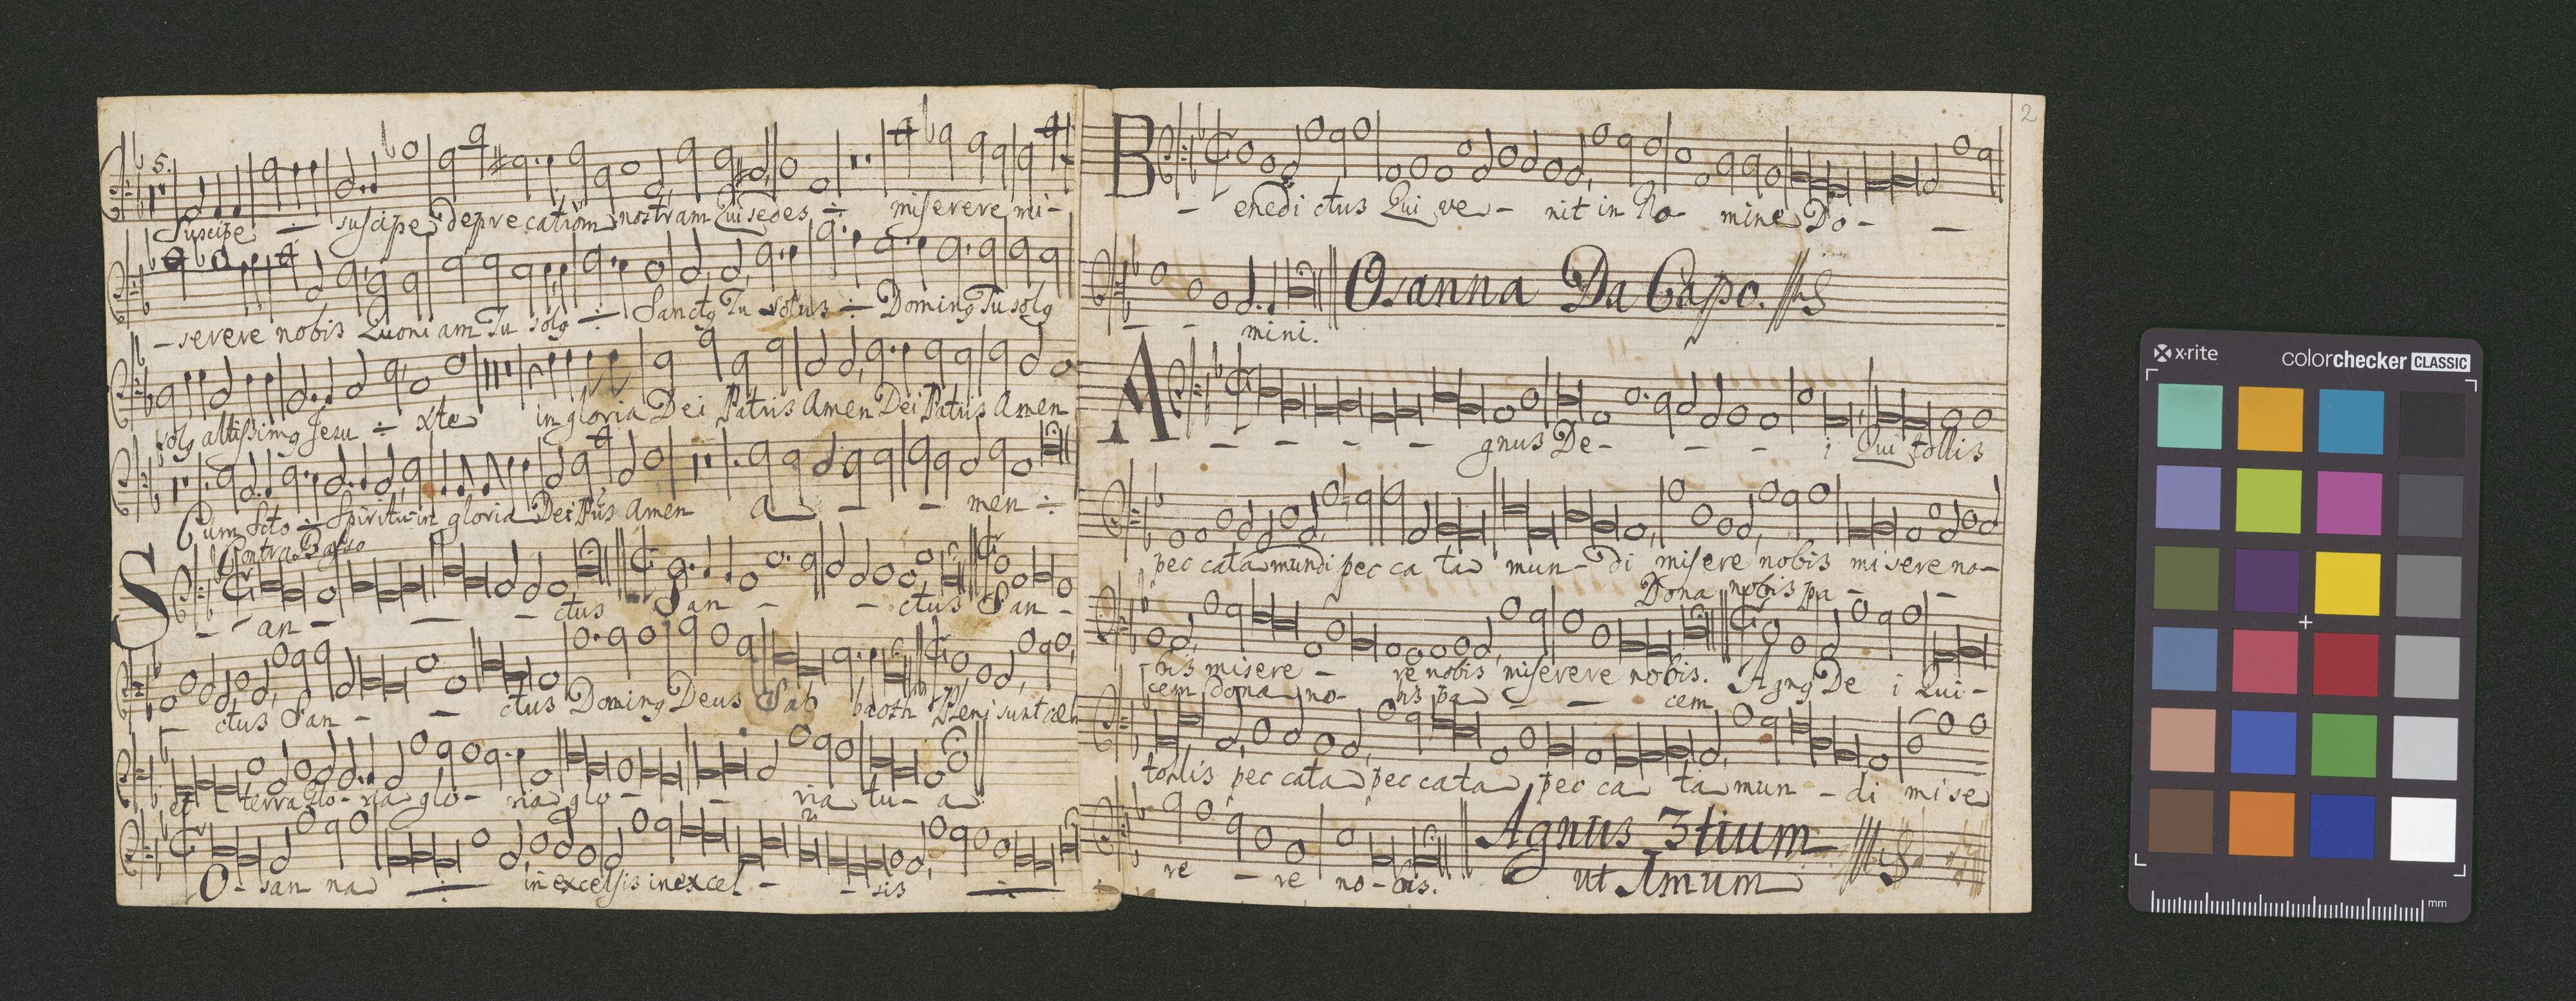 5.
Suscipe ÷ suscipe deprecationem nostram Qui sedes ÷ miserere mi-
- serere nobis Quoniam Tu solg ÷ Sanctg Tu solus ÷ Doming Tu solg
solg altissimg Jesu ÷ xte in gloria Dei Patris Amen Dei Patris Amen
Cum Scto ÷ Spiritu in gloria Dei Pris Amen A - - men ÷
Contra Basso
S - an - - - ctus San - - ctus San -
- ctus San - - ctus Doming Deus Sab baoth Pleni sunt cæli
et terra Glo- ria glo- ria glo - - ria tu- a
O- san na ÷ in excelsis in excel - - sis ÷
2
B - enedi ctus Qui ve - nit in No- mine Do - -
- - mini. Osanna Da Capo.
A - - - - gnus De - - - i Qui tollis
pec cata mundi pec ca ta mun - di misere nobis misere no-
Dona nobis pa - -
- bis misere - re nobis miserere nobis. Agng De i Qui-
cem dona no- bis pa - - cem
tollis pec cata pec cata pec ca ta mun - di mise
re - re no - bis. Agnus 3tium
ut Imum
x-rite colorchecker CLASSIC
mm